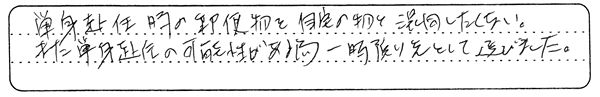 単身赴任時の郵便物を自宅の物と混同したくない。
また単身赴任の可能性がある為一時預り先として選びました。